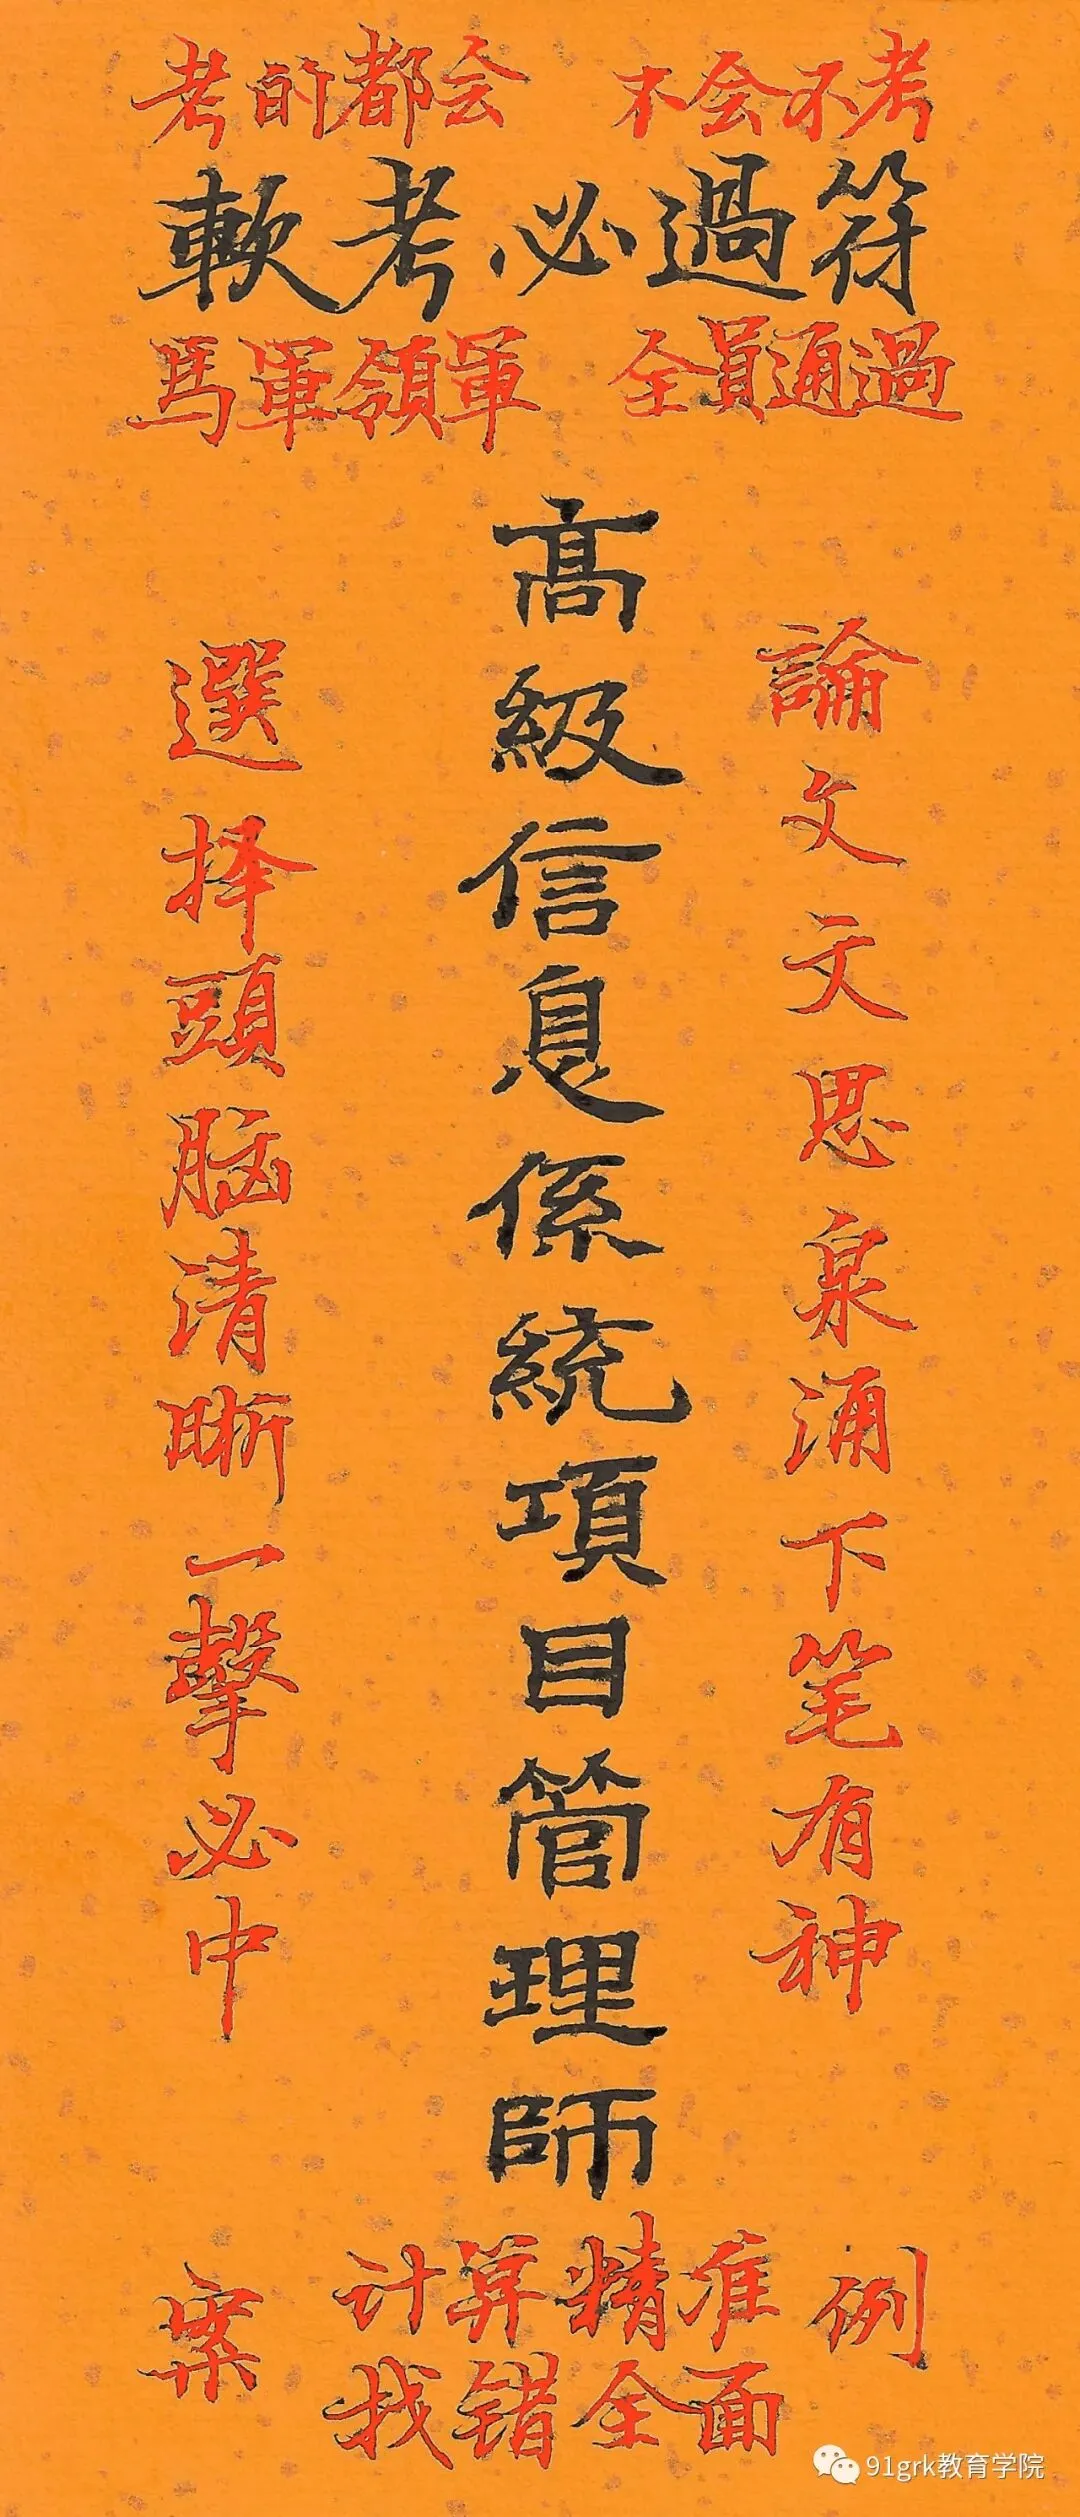 考的都会 不会不考
軟考必過符
馬軍領軍 全員通過
高級信息係統項目管理師
論文文思泉涌下笔有神
選择頭脑清晰一擊必中
案 计算精准 例
找错全面
91grk教育学院